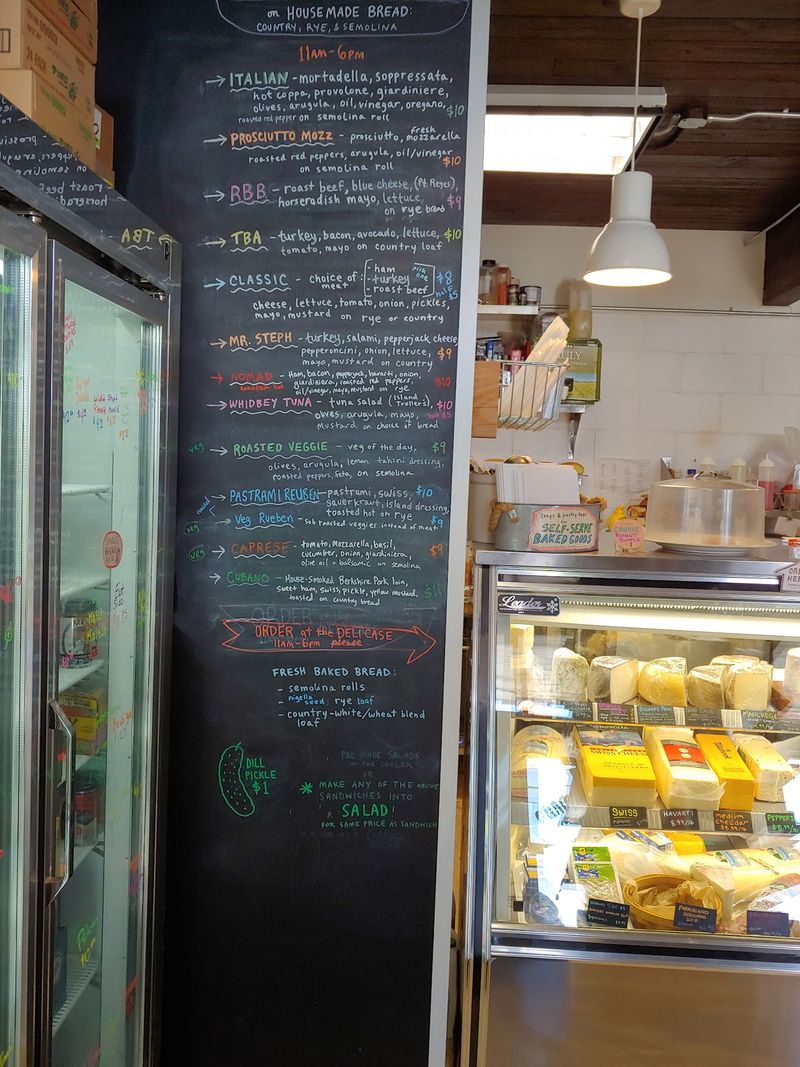 on HOUSEMADE BREAD:
COUNTRY, RYE, & SEMOLINA
11AM-6PM
→ ITALIAN - mortadella, soppressata,
hot coppa, provolone, giardiniere,
olives, arugula, oil, vinegar, oregano,
roasted red pepper on semolina roll $10
→ PROSCIUTTO MOZZ - prosciutto, fresh mozzarella
roasted red peppers, arugula, oil/vinegar
on semolina roll $10
→ RBB - roast beef, blue cheese, (Pt. Reyes),
horseradish mayo, lettuce,
on rye bread $9
→ TBA - turkey, bacon, avocado, lettuce, $10
tomato, mayo on country loaf
→ CLASSIC - choice of meat: - ham
- turkey
- roast beef
pick one
$8
half $5
cheese, lettuce, tomato, onion, pickles,
mayo, mustard on rye or country
→ MR. STEPH - turkey, salami, pepperjack cheese
pepperoncini, onion, lettuce, $9
mayo, mustard on country
→ NOMAD - Ham, bacon, pepperjack, havarti, onion,
toasted hot giardiniera, roasted red peppers, $10
oil/vinegar, mayo, mustard on rye
→ WHIDBEY TUNA - tuna salad (Island Trollers), $10
olives, arugula, mayo, half $5
Mustard on choice of bread
veg → ROASTED VEGGIE - veg of the day, $9
olives, arugula, lemon tahini dressing,
roasted peppers, feta on semolina
→ PASTRAMI REUBEN - pastrami, swiss, $10
sauerkraut, island dressing,
toasted hot on rye
veg → Veg Rueben - sub roasted veggies instead of meat $9
veg → CAPRESE - tomato, Mozzarella, basil, $9
cucumber, onion, giardiniera,
olive oil + balsamic on semolina
→ CUBANO - House-Smoked Berkshire Pork loin,
sweet ham, swish, pickle, yellow mustard, $11
toasted on country bread
ORDER
ORDER at the DELI CASE
11am-6pm please
FRESH BAKED BREAD:
- semolina rolls
- nigella seed, rye loaf
- country-white/wheat blend
loaf
DILL
PICKLE
$1
PRE-MADE SALADS
IN THE COOLER
OR
* MAKE ANY OF THE ABOVE
SANDWICHES INTO
A SALAD!
FOR SAME PRICE AS SANDWICH
tongs & pastry bags
for
SELF-SERVE
BAKED GOODS
COOKIE
PEANUT
Leader
MANCHEGO
SWISS
HAVARTI
8.99/lb
medium
cheddar
PEPPER
TBA